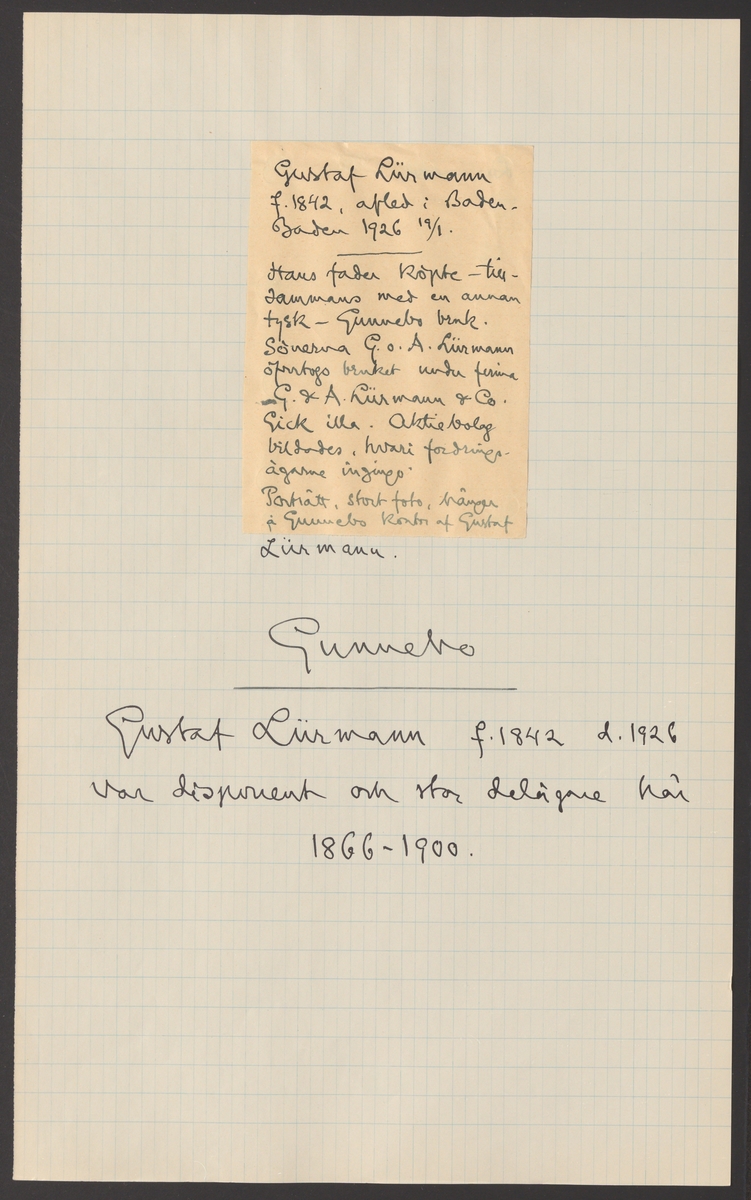 Gustaf Lürmann
f. 1842, afled i Baden-
Baden 1926 19/1.
Hans fader köpte – till-
sammans med en annan
tysk – Gunnebo bruk.
Sönerna G. o. A. Lürmann
öfvertogo bruket under firma
G. & A. Lürmann & Co.
Gick illa. Aktiebolag
bildades, hvari fordrings-
ägarne ingingo.
Porträtt, stort foto, hänger
å Gunnebo kontor af Gustaf
Lürmann.
Gunnebo
Gustaf Lürmann f. 1842 d. 1926
var disponent och stor delägare här
1866-1900.